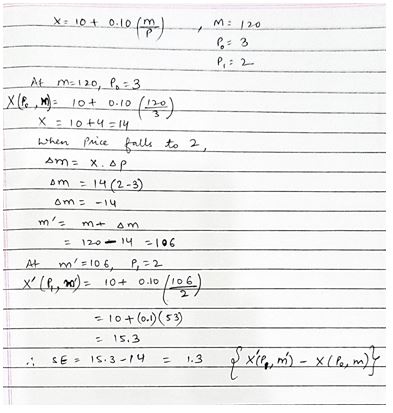 X = 10 + 0.10 (m/P) , M = 120
P₀ = 3
P₁ = 2
At m=120, P₀ = 3
X(P₀, m) = 10 + 0.10 (120/3)
X = 10 + 4 = 14
When Price falls to 2,
Δm = X. ΔP
Δm = 14(2-3)
Δm = -14
m' = m + Δm
= 120 - 14 = 106
At m' = 106, P₁ = 2
X'(P₁, m') = 10 + 0.10 (106/2)
= 10 + (0.1)(53)
= 15.3
∴ SE = 15.3 - 14 = 1.3 { X'(P₁, m') - X(P₀, m) }